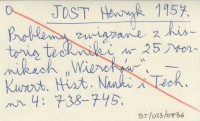 a JOST Henryk 1957.
Problemy związane z his-
torią techniki w 25 rocz-
nikach „Wierchów". —
Kwart. Hist. Nauki i Tech.
nr 4: 738-745.
BT/023/0836